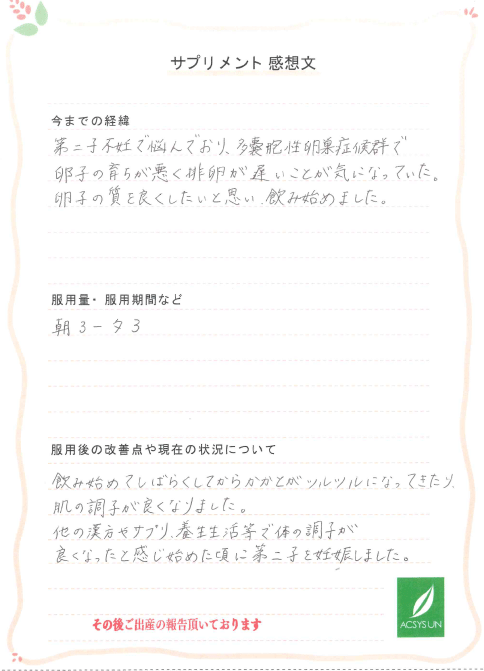 サプリメント 感想文
今までの経緯
第二子不妊で悩んでおり、多嚢胞性卵巣症候群で
卵子の育ちが悪く排卵が遅いことが気になっていた。
卵子の質を良くしたいと思い、飲み始めました。
服用量・服用期間など
朝3－夕3
服用後の改善点や現在の状況について
飲み始めてしばらくしてからかかとがツルツルになってきたり、
肌の調子が良くなりました。
他の漢方やサプリ、養生生活等で体の調子が
良くなったと感じ始めた頃に第二子を妊娠しました。
その後ご出産の報告頂いております
ACSYSUN